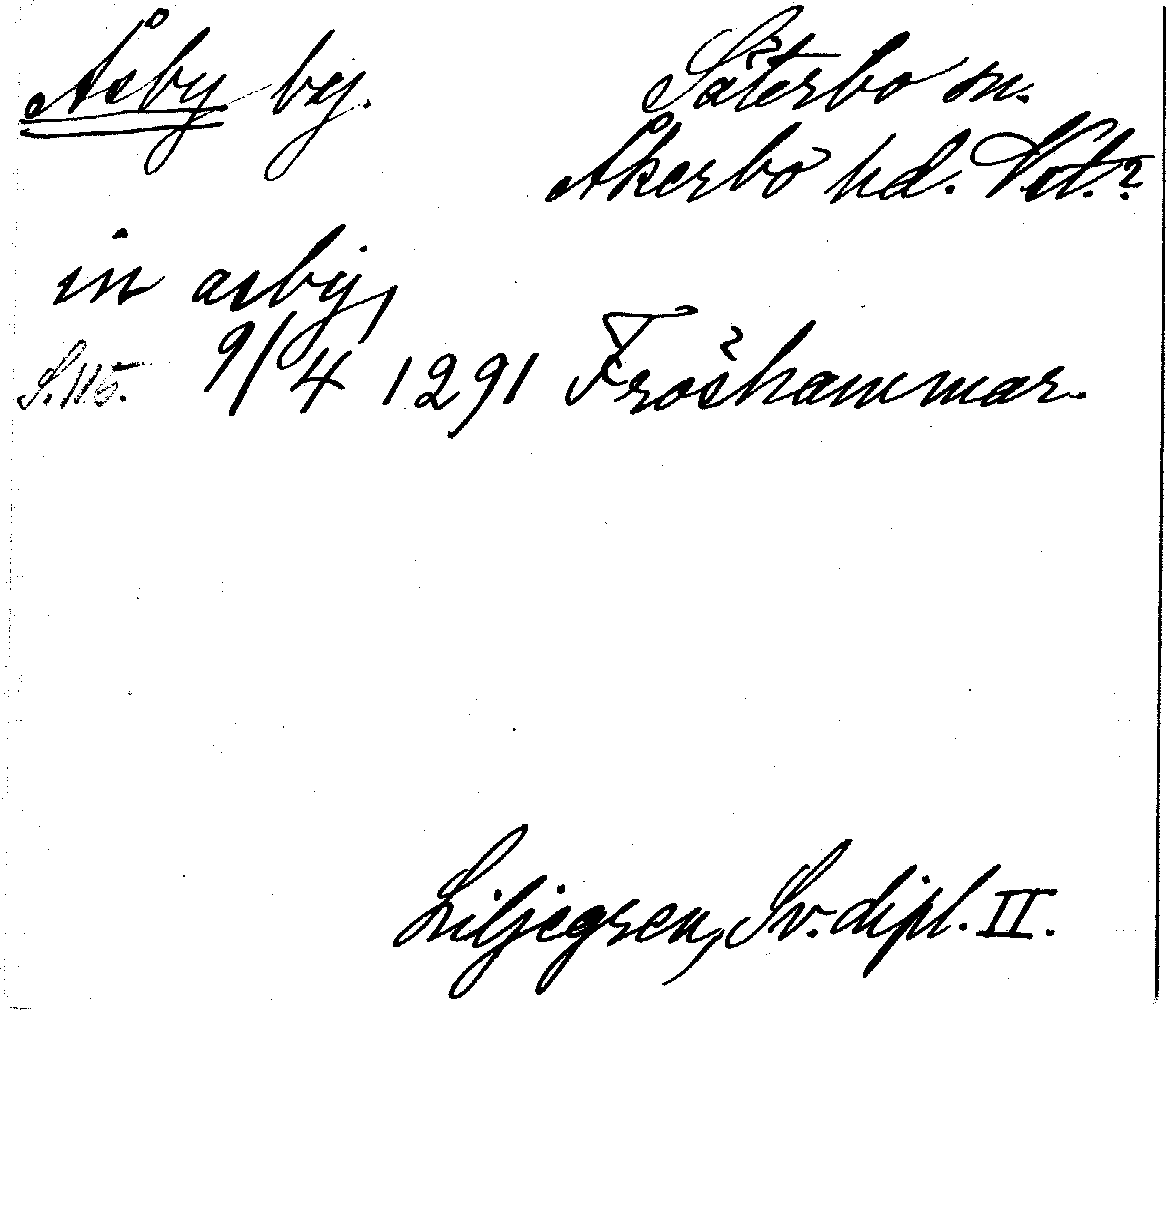 Åsby by.
Säterbo sn.
Åkerbo hd. Vstm.?
in asby,
S. 115. 9/4 1291 Fröshammar.
Liljegren, Sv. dipl. II.